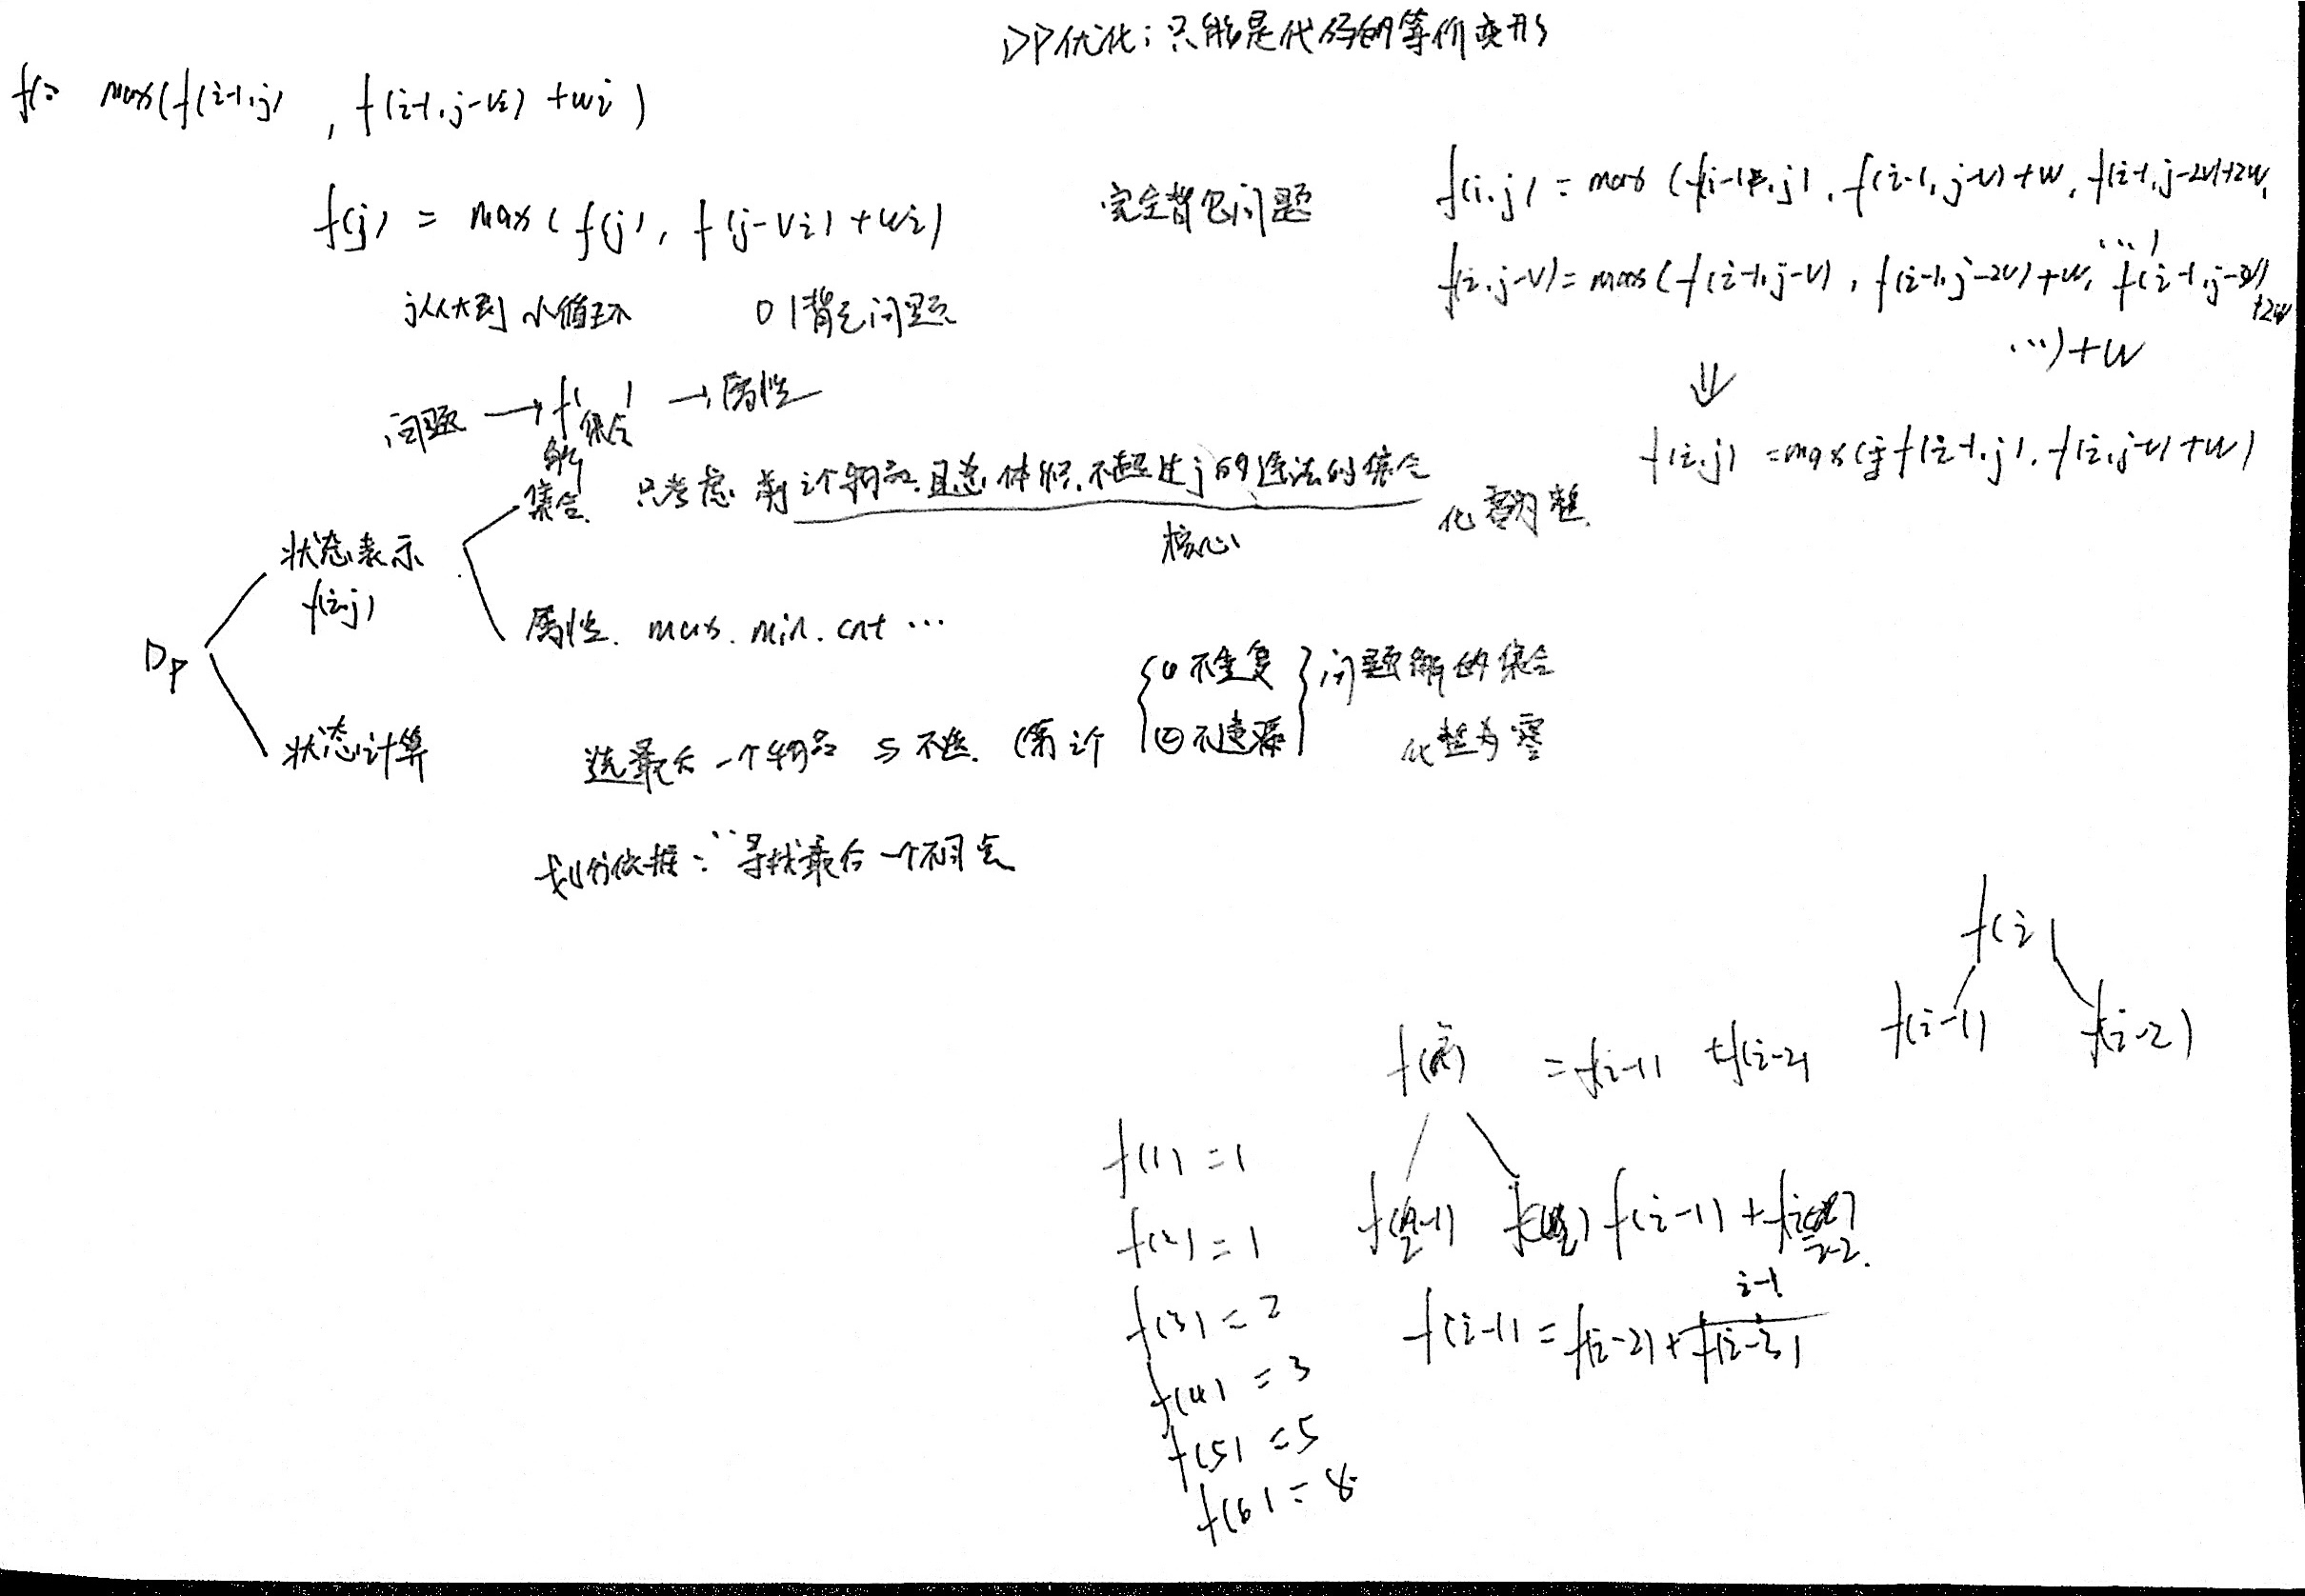 DP优化:只能是代码的等价变形
f= max(f(i-1,j), f(i-1,j-vi)+wi)
f(j) = max(f(j), f(j-vi)+wi)
j从大到小循环 01背包问题
完全背包问题
f(i,j) = max(f(i-1,j), f(i-1,j-v)+w, f(i-1,j-2v)+2w, ...)
f(i,j-v) = max(f(i-1,j-v), f(i-1,j-2v)+w, f(i-1,j-3v)+2w ...)+w
⇓
f(i,j) = max(f(i-1,j), f(i,j-v)+w)
问题 → f( ) → 属性
集合
解
集合 只考虑前i个物品,且总体积不超过j的选法的集合
化零为整
核心
状态表示
f(i,j)
属性. max. min. cnt ...
DP
状态计算
选最后一个物品与不选.(第i个
{① 不重复
② 不遗漏}
问题解的集合
化整为零
划分依据:"寻找最后一个不同点
f(i)
f(i-1) f(i-2)
= f(i-1) + f(i-2)
f(1) = 1
f(2) = 1
f(3) = 2
f(4) = 3
f(5) = 5
f(6) = 8
f(i-1) +
i-2
i-1
f(i-1) = f(i-2) + f(i-3)